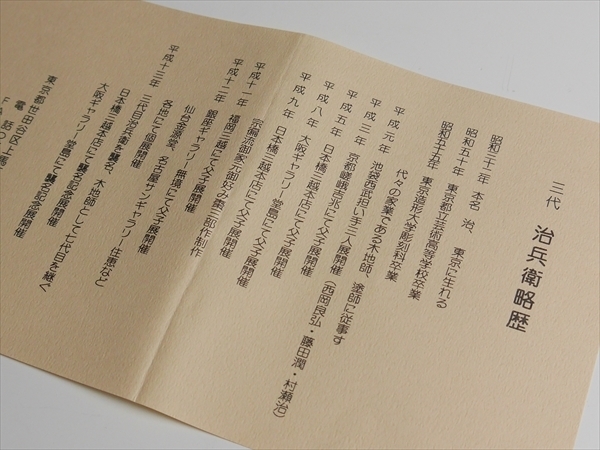 三代　治兵衛略歴
昭和三十二年　本名　治、東京に生れる
昭和五十年　東京都立芸術高等学校卒業
昭和五十五年　東京造形大学彫刻科卒業
代々の家業である木地師、塗師に従事す
平成元年　池袋西武担い手三人展開催（西岡良弘・藤田潤・村瀬治）
平成三年　京都嵯峨吉兆にて父子展開催
平成五年　日本橋三越本店にて父子展開催
平成八年　大阪ギャラリー堂島にて父子展開催
平成九年　日本橋三越本店にて父子展開催
宗徧流御家元御好み棗三部作制作
平成十一年　福岡三越にて父子展開催
平成十二年　銀座ギャラリー無境にて父子展開催
仙台金源堂、名古屋サンギャラリー住恵など
各地にて個展開催
平成十三年　三代目治兵衛を襲名、木地師として七代目を継ぐ
日本橋三越本店にて襲名記念展開催
大阪ギャラリー堂島にて襲名記念展開催
東京都世田谷区上馬
電話の
FAX